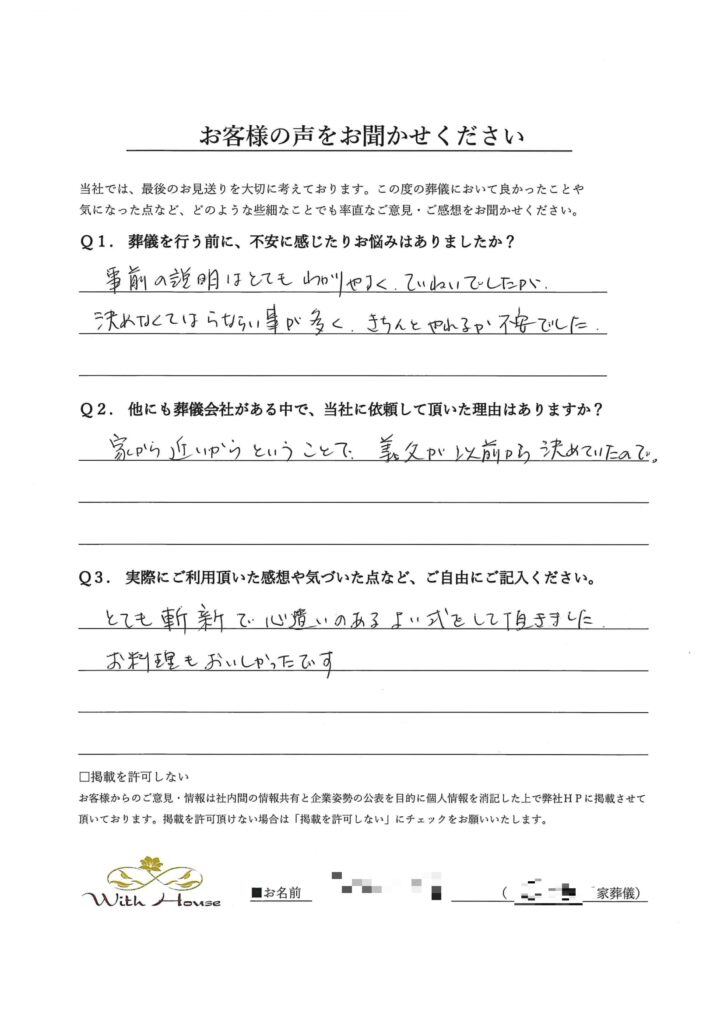 お客様の声をお聞かせください
当社では、最後のお見送りを大切に考えております。この度の葬儀において良かったことや
気になった点など、どのような些細なことでも率直なご意見・ご感想をお聞かせください。
Q1. 葬儀を行う前に、不安に感じたりお悩みはありましたか?
事前の説明はとてもわかりやすく、ていねいでしたが、
決めなくてはらならい事が多く、きちんとやれるか不安でした。
Q2. 他にも葬儀会社がある中で、当社に依頼して頂いた理由はありますか?
家から近いからということで、義父が以前から決めていたので。
Q3. 実際にご利用頂いた感想や気づいた点など、ご自由にご記入ください。
とても斬新で心遣いのあるよい式をして頂きました。
お料理もおいしかったです
□掲載を許可しない
お客様からのご意見・情報は社内間の情報共有と企業姿勢の公表を目的に個人情報を消記した上で弊社HPに掲載させて
頂いております。掲載を許可頂けない場合は「掲載を許可しない」にチェックをお願いいたします。
With House
■お名前 ( 家葬儀)